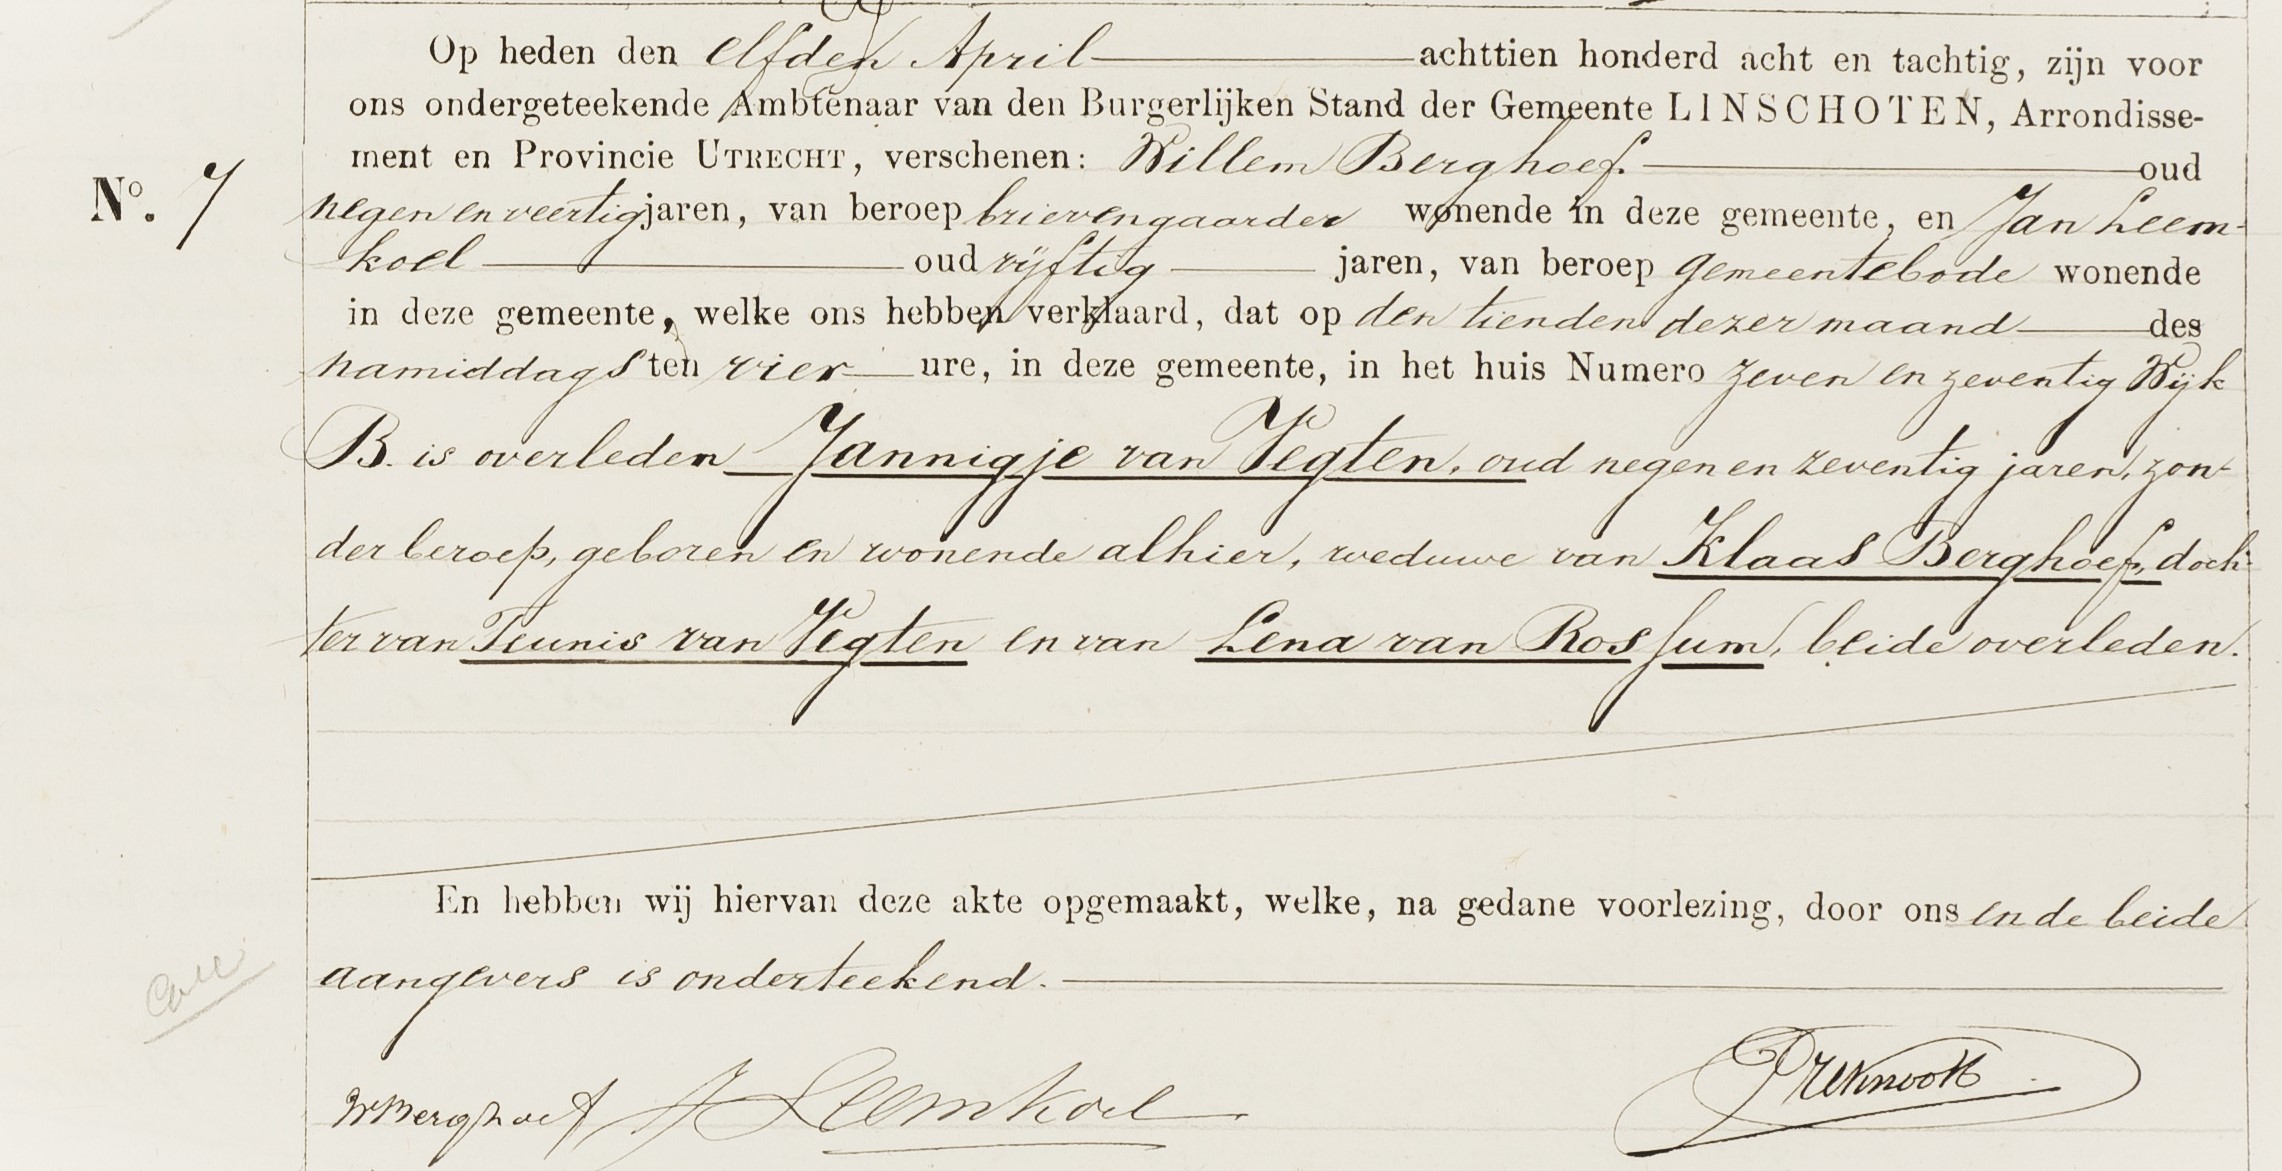 Op heden den elfden April achttien honderd acht en tachtig, zijn voor
ons ondergeteekende Ambtenaar van den Burgerlijken Stand der Gemeente LINSCHOTEN, Arrondisse-
ment en Provincie UTRECHT, verschenen: Willem Berghoef. oud
No. 7
negen en veertig jaren, van beroep brievengaarder wonende in deze gemeente, en Jan Leem-
koel oud vijftig jaren, van beroep gemeentebode wonende
in deze gemeente, welke ons hebben verklaard, dat op den tienden dezer maand des
namiddags ten vier ure, in deze gemeente, in het huis Numero zeven en zeventig Wijk
B. is overleden Jannigje van Vegten, oud negen en zeventig jaren, zon-
der beroep, geboren en wonende alhier, weduwe van Klaas Berghoef, doch-
ter van Teunis van Vegten en van Lena van Rossum, beide overleden.
En hebben wij hiervan deze akte opgemaakt, welke, na gedane voorlezing, door ons en de beide
aangevers is onderteekend.
W Berghoef J Leemkoel